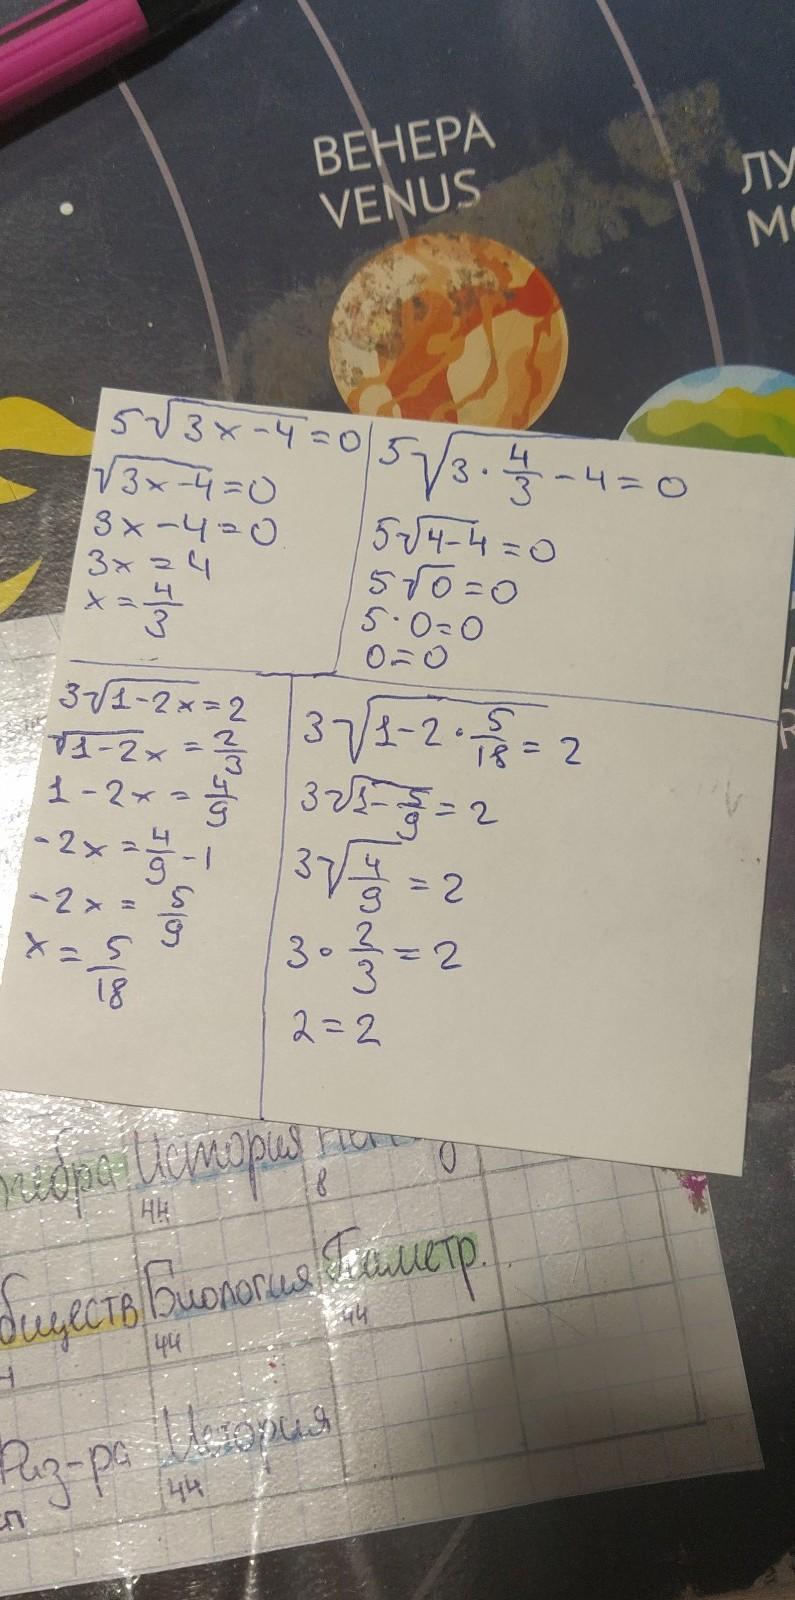 ВЕНЕРА
VENUS
5√3x-4=0
√3x-4=0
3x-4=0
3x=4
x=4/3
5√3·4/3-4=0
5√4-4=0
5√0=0
5·0=0
0=0
3√1-2x=2
√1-2x=2/3
1-2x=4/9
-2x=4/9-1
-2x=5/9
x=5/18
3√1-2·5/18=2
3√1-5/9=2
3√4/9=2
3·2/3=2
2=2
История
44
8
Биология
44
44
Физ-ра История
44